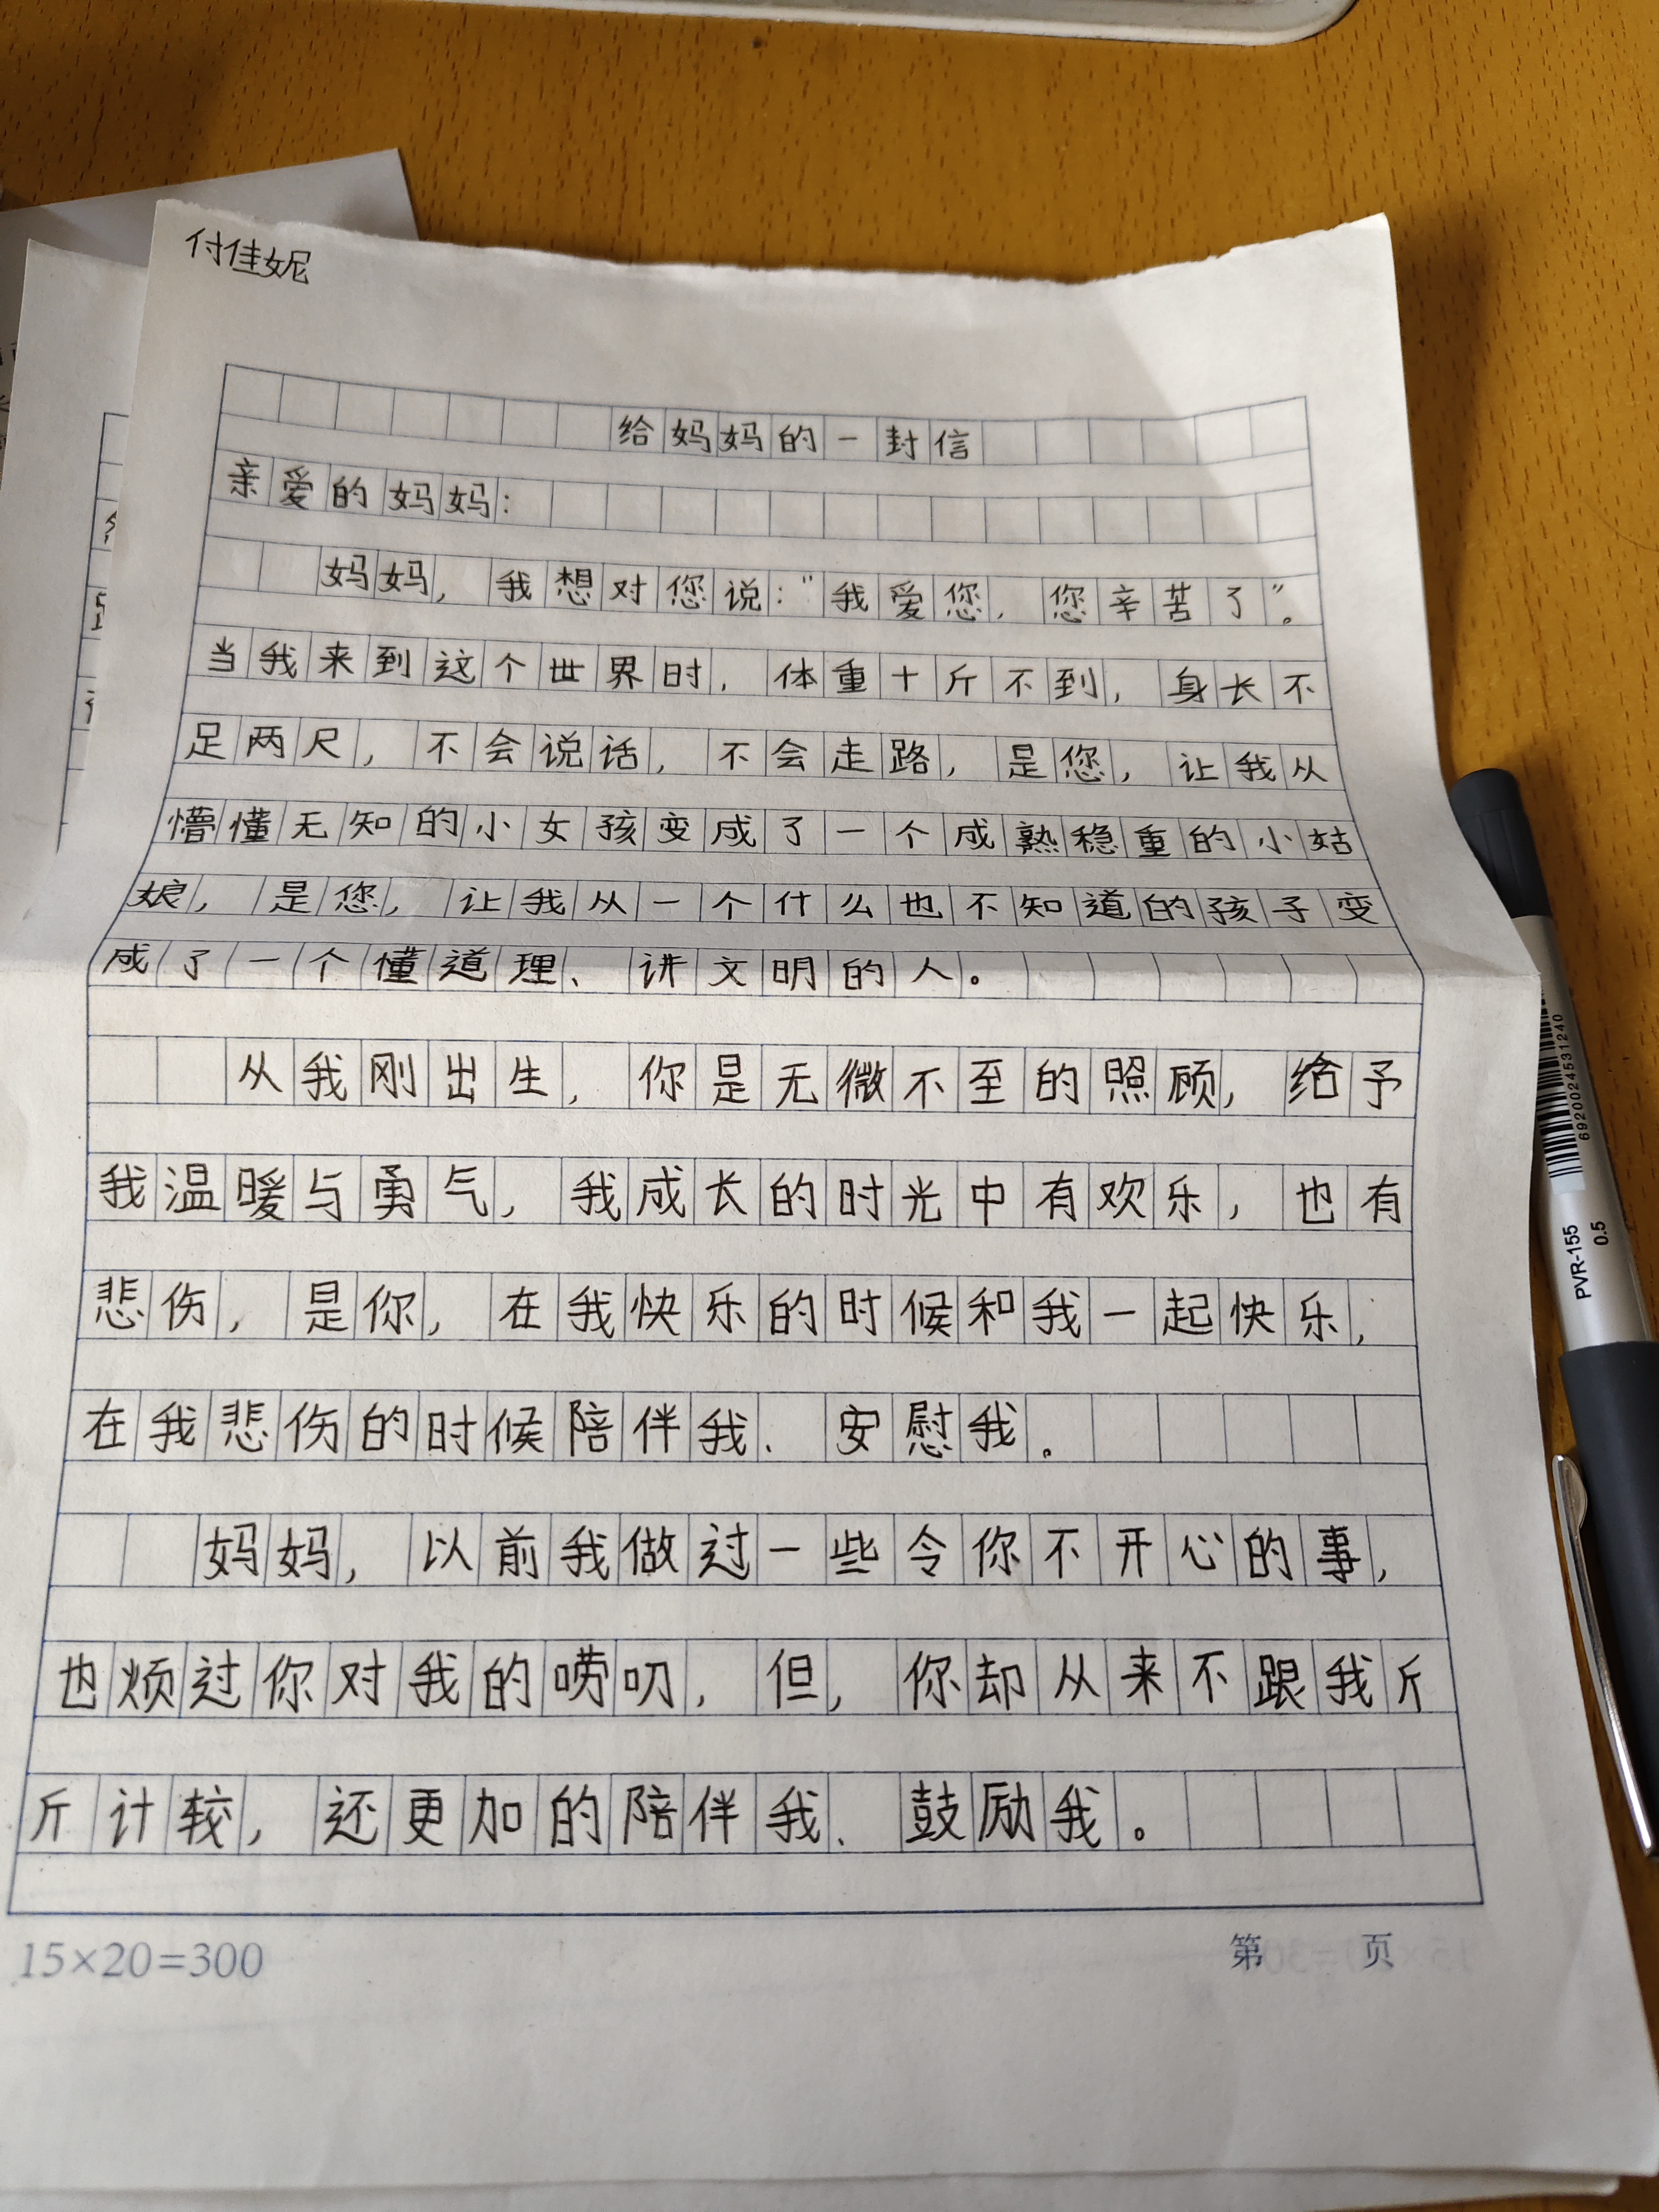 付佳妮
给妈妈的一封信
亲爱的妈妈:
妈妈，我想对您说:"我爱您，您辛苦了"。
当我来到这个世界时，体重十斤不到，身长不
足两尺，不会说话，不会走路，是您，让我从
懵懂无知的小女孩变成了一个成熟稳重的小姑
娘，是您，让我从一个什么也不知道的孩子变
成了一个懂道理、讲文明的人。
从我刚出生，你是无微不至的照顾，给予
我温暖与勇气，我成长的时光中有欢乐，也有
悲伤，是你，在我快乐的时候和我一起快乐，
在我悲伤的时候陪伴我、安慰我。
妈妈，以前我做过一些令你不开心的事，
也烦过你对我的唠叨，但，你却从来不跟我斤
斤计较，还更加的陪伴我、鼓励我。
15×20=300
第 页
6920024531240
PVR-155
0.5